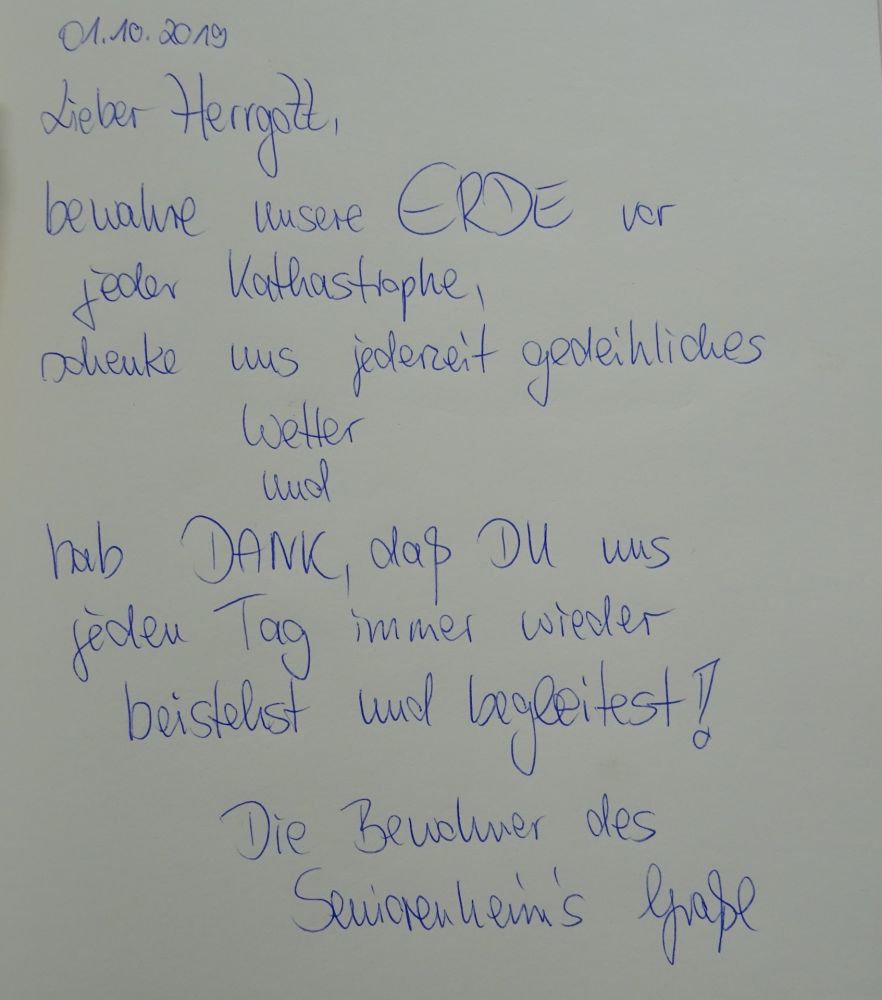 01.10.2019
Lieber Herrgott,
bewahre unsere ERDE vor
jeder Kathastrophe,
schenke uns jederzeit gedeihliches
Wetter
und
hab DANK, daß DU uns
jeden Tag immer wieder
beistehst und begleitest!
Die Bewohner des
Seniorenheim's